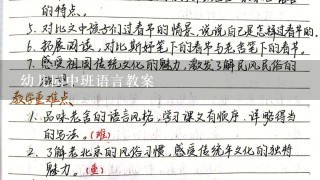 的特点。
5. 对比文中孩子们过春节的情景，说说自己是怎样过春节的。
6. 拓展阅读，对比斯妤笔下的春节与老舍笔下的春节。
7. 感受祖国传统文化的魅力，激发了解民风民俗的
幼儿园中班语言教案
教学重难点
1. 品味老舍的语言风格，学习课文有顺序、详略得当
的写法。(难)
2. 了解老北京的风俗习惯，感受传统年文化的独特
魅力。(重)